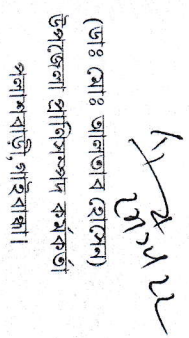 (ডাঃ মোঃ আলতাব হোসেন)
উপজেলা প্রানিসম্পদ কর্মকর্তা
পলাশবাড়ি, গাইবান্ধা।